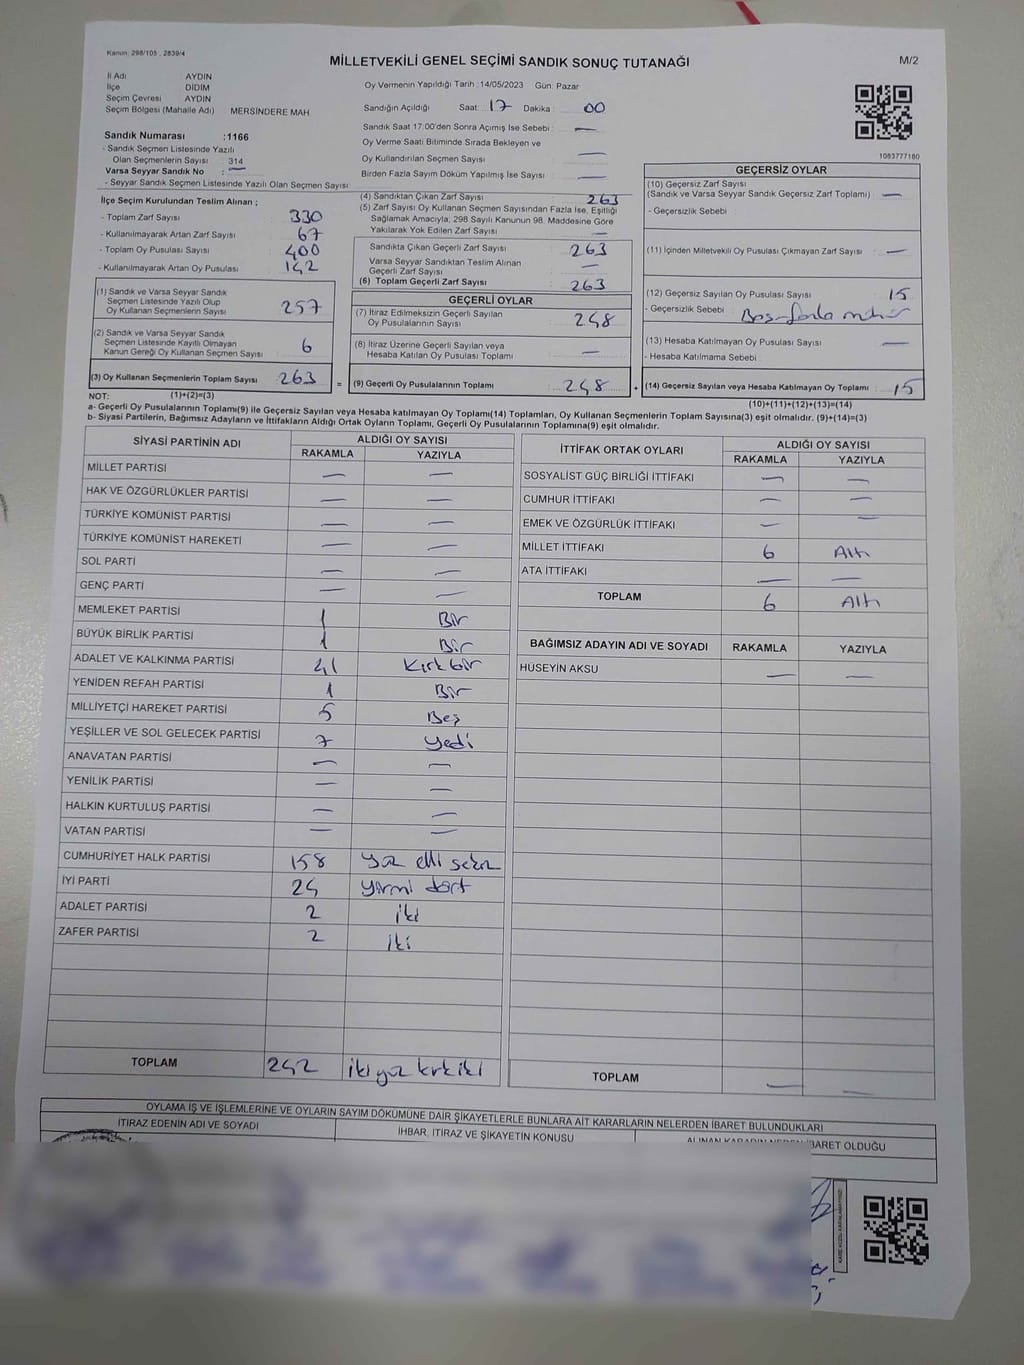 Kanun: 298/105 , 2839/4
MİLLETVEKİLİ GENEL SEÇİMİ SANDIK SONUÇ TUTANAĞI
M/2
İl Adı AYDIN
İlçe DİDİM
Seçim Çevresi AYDIN
Seçim Bölgesi (Mahalle Adı) MERSİNDERE MAH
Sandık Numarası :1166
- Sandık Seçmen Listesinde Yazılı
Olan Seçmenlerin Sayısı : 314
Varsa Seyyar Sandık No : —
- Seyyar Sandık Seçmen Listesinde Yazılı Olan Seçmen Sayısı
Oy Vermenin Yapıldığı Tarih :14/05/2023 Gün: Pazar
Sandığın Açıldığı Saat: 17 Dakika : 00
Sandık Saat 17:00'den Sonra Açımış İse Sebebi : —
Oy Verme Saati Bitiminde Sırada Bekleyen ve
Oy Kullandırılan Seçmen Sayısı : —
Birden Fazla Sayım Döküm Yapılmış İse Sayısı : —
1083777180
İlçe Seçim Kurulundan Teslim Alınan ;
- Toplam Zarf Sayısı : 330
- Kullanılmayarak Artan Zarf Sayısı : 67
- Toplam Oy Pusulası Sayısı : 400
- Kullanılmayarak Artan Oy Pusulası : 142
(1) Sandık ve Varsa Seyyar Sandık
Seçmen Listesinde Yazılı Olup
Oy Kullanan Seçmenlerin Sayısı : 257
(2) Sandık ve Varsa Seyyar Sandık
Seçmen Listesinde Kayıtlı Olmayan
Kanun Gereği Oy Kullanan Seçmen Sayısı : 6
(3) Oy Kullanan Seçmenlerin Toplam Sayısı : 263
(1)+(2)=(3)
(4) Sandıktan Çıkan Zarf Sayısı : 263
(5) Zarf Sayısı Oy Kullanan Seçmen Sayısından Fazla İse, Eşitliği
Sağlamak Amacıyla, 298 Sayılı Kanunun 98. Maddesine Göre
Yakılarak Yok Edilen Zarf Sayısı : —
Sandıkta Çıkan Geçerli Zarf Sayısı : 263
Varsa Seyyar Sandıktan Teslim Alınan
Geçerli Zarf Sayısı : —
(6) Toplam Geçerli Zarf Sayısı : 263
GEÇERLİ OYLAR
(7) İtiraz Edilmeksizin Geçerli Sayılan
Oy Pusulalarının Sayısı : 248
(8) İtiraz Üzerine Geçerli Sayılan veya
Hesaba Katılan Oy Pusulası Toplamı : —
= (9) Geçerli Oy Pusulalarının Toplamı : 248
GEÇERSİZ OYLAR
(10) Geçersiz Zarf Sayısı
(Sandık ve Varsa Seyyar Sandık Geçersiz Zarf Toplamı) : —
- Geçersizlik Sebebi :
(11) İçinden Milletvekili Oy Pusulası Çıkmayan Zarf Sayısı : —
(12) Geçersiz Sayılan Oy Pusulası Sayısı : 15
- Geçersizlik Sebebi :
(13) Hesaba Katılmayan Oy Pusulası Sayısı : —
- Hesaba Katılmama Sebebi :
+ (14) Geçersiz Sayılan veya Hesaba Katılmayan Oy Toplamı : 15
(10)+(11)+(12)+(13)=(14)
NOT:
a- Geçerli Oy Pusulalarının Toplamı(9) ile Geçersiz Sayılan veya Hesaba katılmayan Oy Toplamı(14) Toplamları, Oy Kullanan Seçmenlerin Toplam Sayısına(3) eşit olmalıdır. (9)+(14)=(3)
b- Siyasi Partilerin, Bağımsız Adayların ve İttifakların Aldığı Ortak Oyların Toplamı, Geçerli Oy Pusulalarının Toplamına(9) eşit olmalıdır.
SİYASİ PARTİNİN ADI ALDIĞI OY SAYISI
RAKAMLA YAZIYLA
MİLLET PARTİSİ — —
HAK VE ÖZGÜRLÜKLER PARTİSİ — —
TÜRKİYE KOMÜNİST PARTİSİ — —
TÜRKİYE KOMÜNİST HAREKETİ — —
SOL PARTİ — —
GENÇ PARTİ — —
MEMLEKET PARTİSİ 1 Bir
BÜYÜK BİRLİK PARTİSİ 1 Bir
ADALET VE KALKINMA PARTİSİ 41 Kırk bir
YENİDEN REFAH PARTİSİ 1 Bir
MİLLİYETÇİ HAREKET PARTİSİ 5 Beş
YEŞİLLER VE SOL GELECEK PARTİSİ 7 Yedi
ANAVATAN PARTİSİ — —
YENİLİK PARTİSİ — —
HALKIN KURTULUŞ PARTİSİ — —
VATAN PARTİSİ — —
CUMHURİYET HALK PARTİSİ 158 Yüz elli sekiz
İYİ PARTİ 24 Yirmi dört
ADALET PARTİSİ 2 iki
ZAFER PARTİSİ 2 iki
TOPLAM 242 iki yüz kırk iki
İTTİFAK ORTAK OYLARI ALDIĞI OY SAYISI
RAKAMLA YAZIYLA
SOSYALİST GÜÇ BİRLİĞİ İTTİFAKI — —
CUMHUR İTTİFAKI — —
EMEK VE ÖZGÜRLÜK İTTİFAKI — —
MİLLET İTTİFAKI 6 Altı
ATA İTTİFAKI — —
TOPLAM 6 Altı
BAĞIMSIZ ADAYIN ADI VE SOYADI RAKAMLA YAZIYLA
HÜSEYİN AKSU — —
TOPLAM — —
OYLAMA İŞ VE İŞLEMLERİNE VE OYLARIN SAYIM DÖKÜMÜNE DAİR ŞİKAYETLERLE BUNLARA AİT KARARLARIN NELERDEN İBARET BULUNDUKLARI
İTİRAZ EDENİN ADI VE SOYADI
İHBAR, İTİRAZ VE ŞİKAYETİN KONUSU
ALINAN KARARIN NEDEN İBARET OLDUĞU